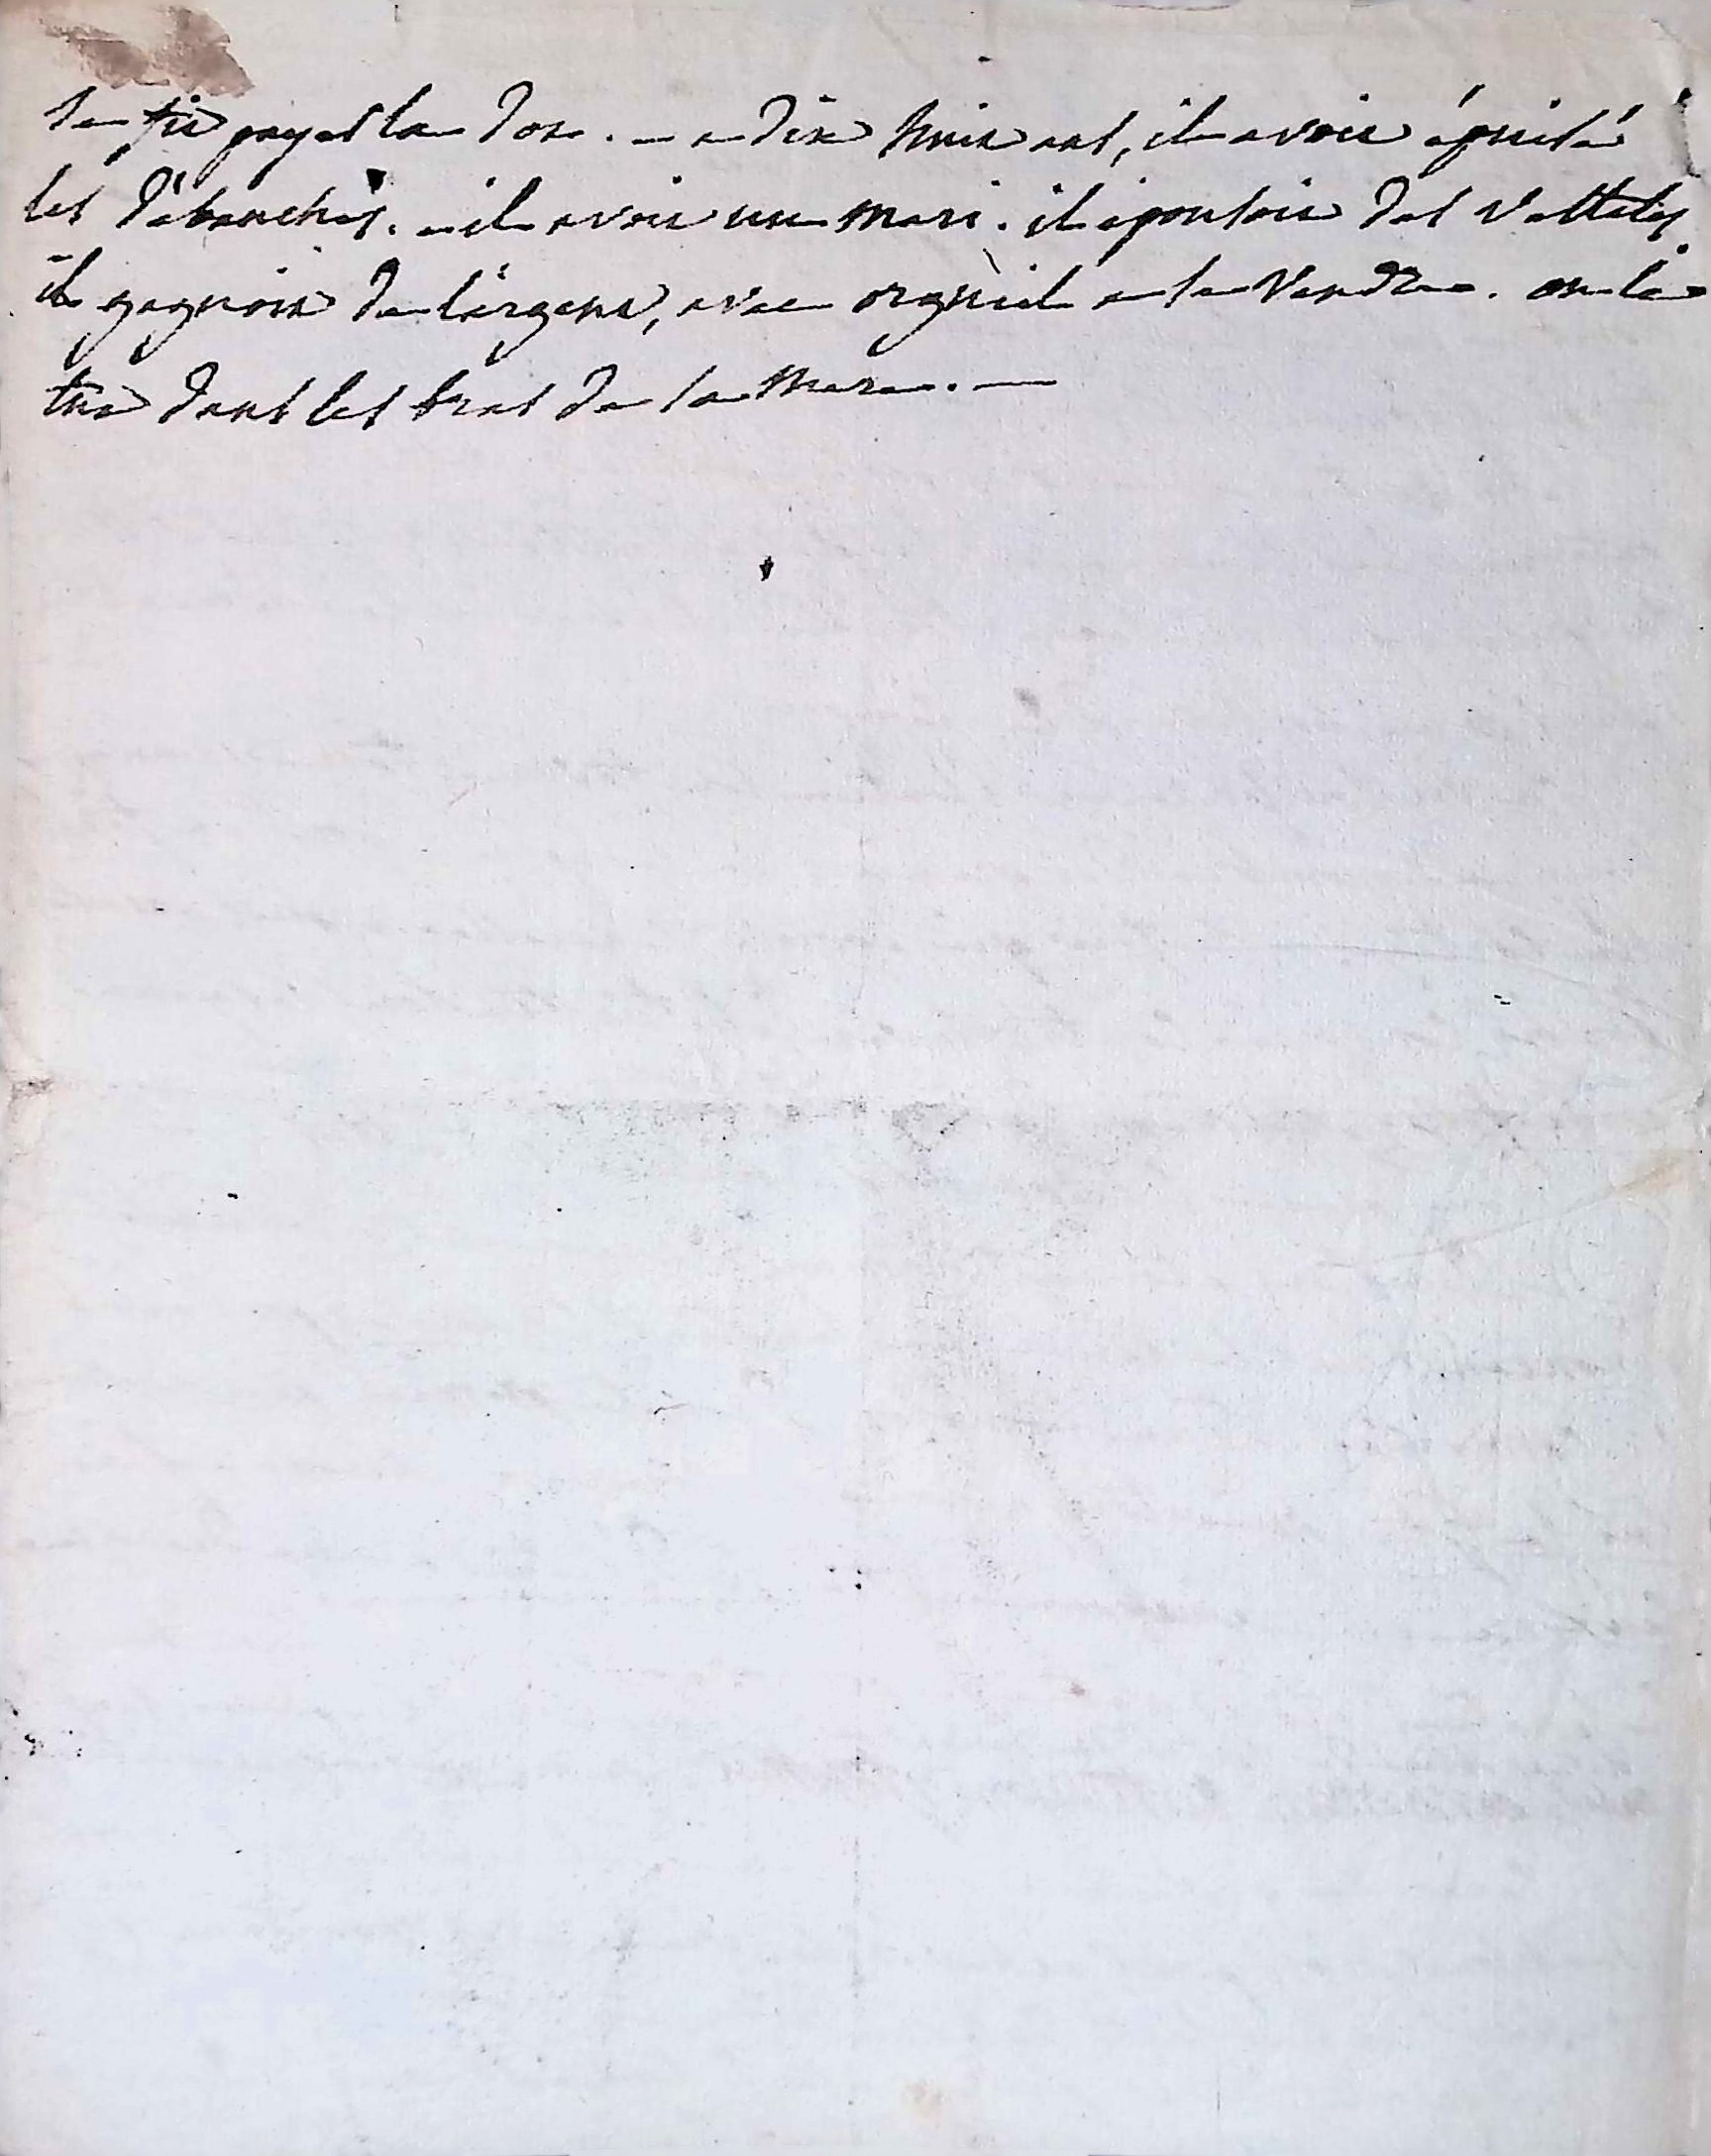 se fit payer la dot. — a dix huit ans, il avoit épuisé
les débauches. — il avoit un mari. il épousoit des vestales,
il gagnoit de l'argent, avec orgueil a se vendre. on le
tua dans les bras de sa mere. —